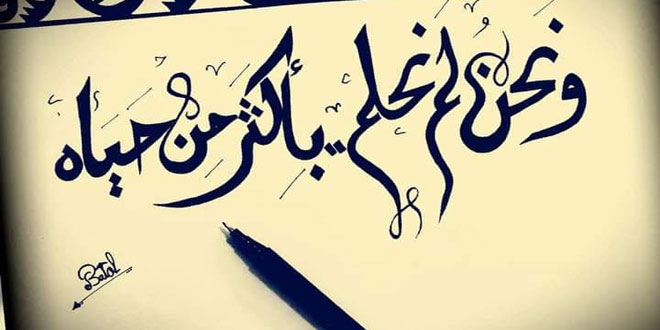 ونحنُ لم نحلم .. بأكثرَ من حياه
Batol